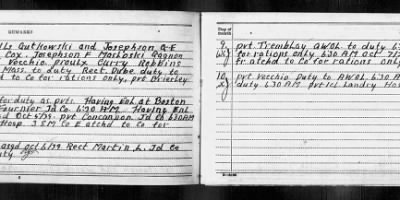 REMARKS
Lls Gutkowski and Josephson G-E
Cox. Josephson F Maskoski Gagnon
Vecchio proulx Curry Robbins
Mass. to duty Rect. Dube duty to
E to Co for rations only. pvt
for duty as pvts. Having Enl at Boston
Fournier Jd Co 630 A.M. Having Enl
Oct 5/39. pvt Concannon Jd Co 630AM
Hosp. I S M C E atchd to Co for
Oct 6/39 Rect Martin L. Jd Co
duty
Day of
Month
9 pvt Tremblay AWOL to duty 63
for rations only 630 AM Oct 7/
fr atchd to Co for rations only
10 pvt Vecchio Duty to AWOL 630 A
duty 630 AM pvt 1cl Landry Hos